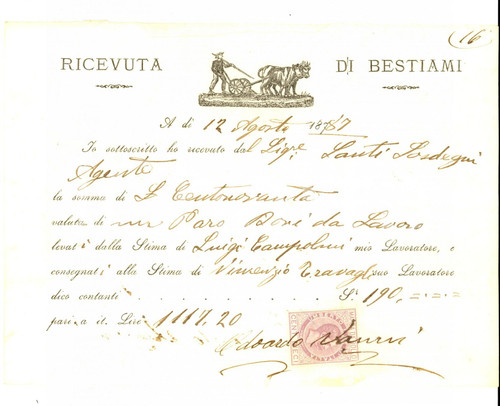 16
RICEVUTA DI BESTIAMI
A dì 12 Agosto 1887
Io sottoscritto ho ricevuto dal Sigre; Santi
Agente
la somma di S. Centonovanta
valuta di un Paro Bovi da Lavoro
levati dalla Stima di Luigi Campolmi mio Lavoratore, e
consegnati alla Stima di Vincenzio Travagli suo Lavoratore
dico contanti S. 190, =.=.=
pari a it. Lire 1117.20
Edoardo